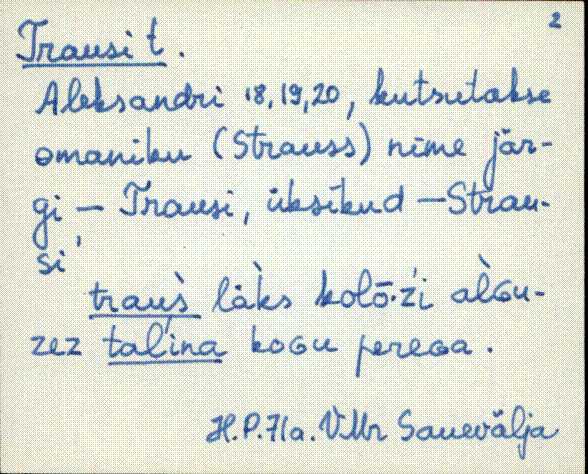 2
Trausi t.
Aleksandri 18,19,20, kutsutakse
omaniku (Strauss) nime jär-
gi – Trausi, üksikud – Strau-
si
traùs̀ läks kolō·źi al̀Gu-
zez tal'ina koGu pereGa.
H.P. 71a. VMr Sauevälja